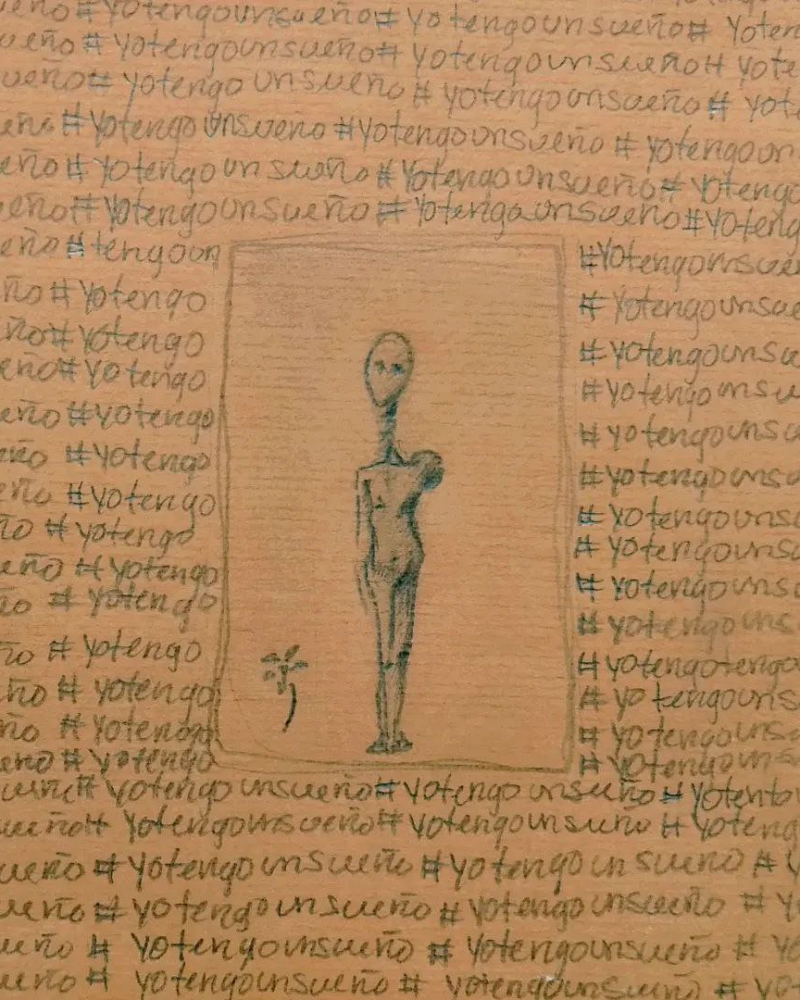 ueño# yotengounsueño# yotengounsueño# Yoten
ueño# yotengounsueño# yotengounsueño# yote
ueño# yotengo unsueño# yotengounsueño# yot
ueño# yotengo unsueño #yotengounsueño # yotengoun
ueño# yotengo un sueño# yotengounsueño# yotengo
ueño# yotengounsueño# yotengounsueño#yoteng
eño #tengoun #Yotengounsue
ño # yotengo # yotengounsue
ño# yotengo # yotengounsu
eño# yotengo # yotengounsu
eño #yotengo # yotengounsu
eño #yotengo # yotengounsu
eño #yotengo # yotengounsu
ño # yotengo # yotengounsu
eño #yotengo # yotengounsu
ño # yotengo # yotengouns
ño # yotengo # yotengotengo
ño # yotengo # yotengouns
ño # yotengo # yotengouns
eño # yotengo # yotengouns
ueño# yotengo unsueño# yotengo unsueño# yotento
ueño# yotengounsueño# yotengounsueño # yoteng
ueño # yotengo unsueño # yotengo un sueño # y
ueño # yotengo unsueño # yotengo unsueño # y
ueño # yotengounsueño # yotengounsueño # yo
ueño # yotengo unsueño # yotengounsueño # yo